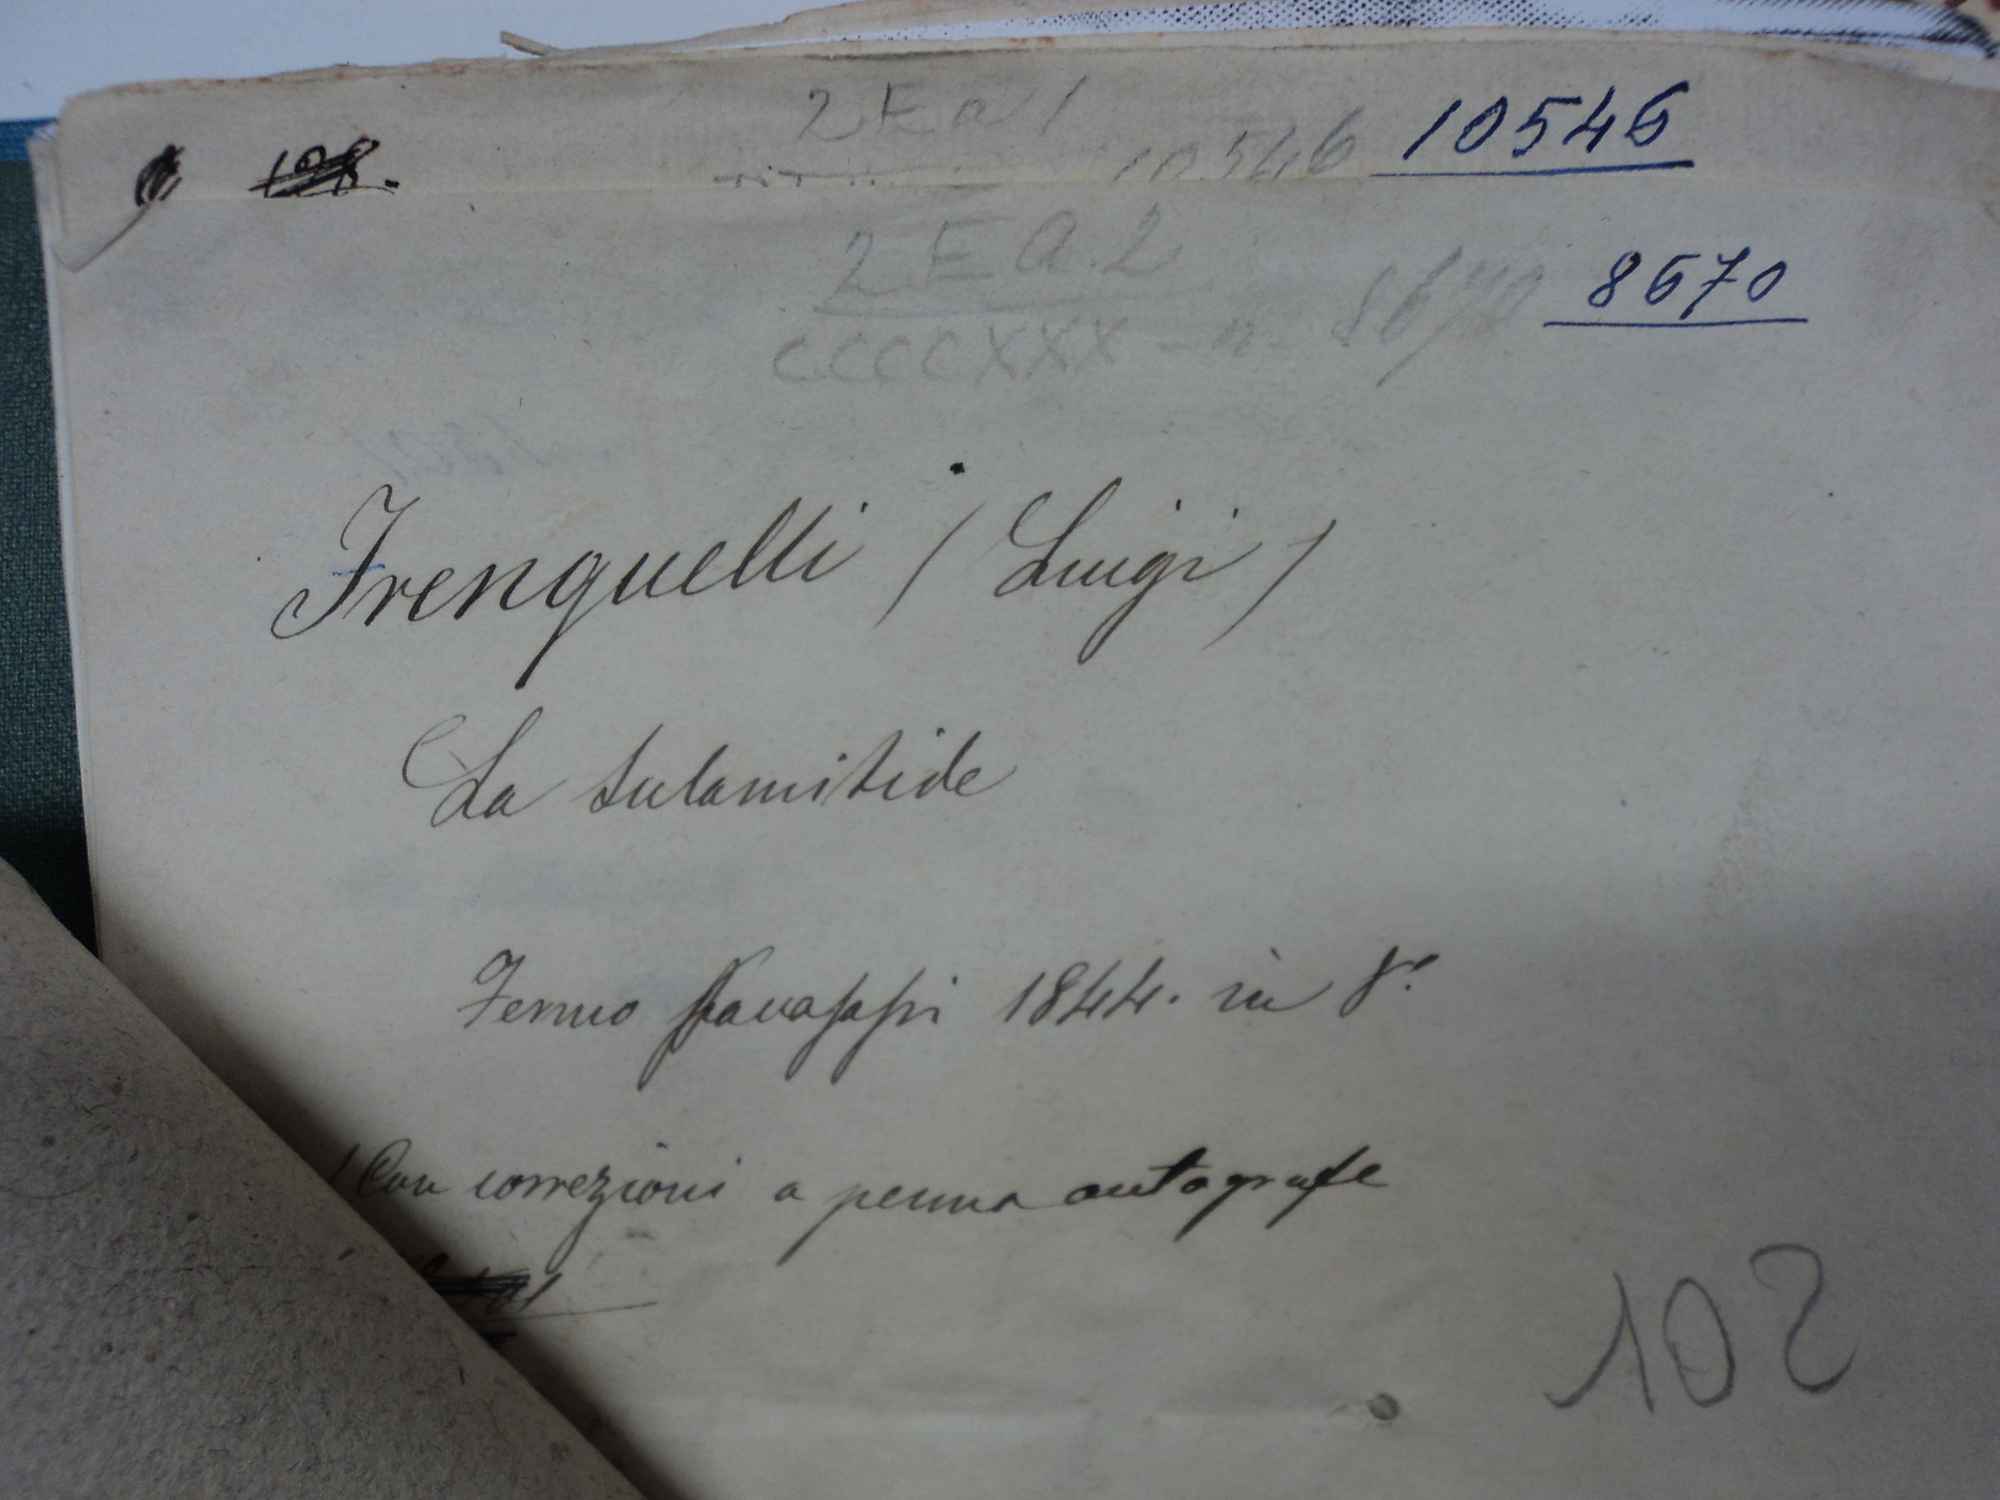 2 E a 1
10546 10546
2 E a. 2
CCCCXXX - n. 8670 8670
Frenquelli (Luigi)
La sulamitide
Fermo Pavassassi 1844. in 8.°
(Con correzioni a penna autografe
102